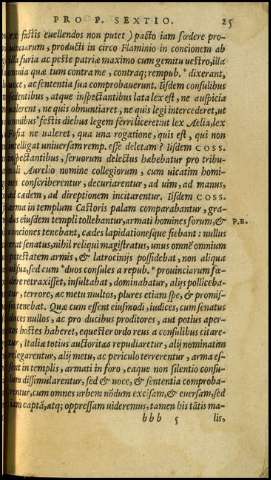 PRO P. SEXTIO. 25
ex fastis euellendos non putet) pacto iam fœdere pro-
uinciarum, producti in circo Flaminio in concionem ab
illa furia ac peste patria maximo cum gemitu uestro, illa
omnia quæ tum contra me, contraq; rempub. dixerant,
uoce, ac sententia sua comprobauerunt. Iisdem consulibus
sedentibus, atque inspectantibus lata lex est, ne auspicia
ualerent, ne quis obnuntiaret, ne quis legi intercederet, ut
omnibus fastis diebus legem ferri liceret: ut lex Aelia, lex
Fusia ne ualeret, qua una rogatione, quis est, qui non
intelligat uniuersam remp. esse deletam? Iisdem COSS.
inspectantibus, seruorum delectus habebatur pro tribu-
nali Aurelio nomine collegiorum, cum uicatim homi-
nes conscriberentur, decuriarentur, ad uim, ad manus,
ad cædem, ad direptionem incitarentur. Iisdem COSS.
arma in templum Castoris palam comparabantur, gra-
dus eiusdem templi tollebantur, armati homines forum, &
P.R.
conciones tenebant, cædes lapidationesque fiebant: nullus
erat senatus, nihil reliqui magistratus, unus omnē omnium
potestatem armis, & latrociniis possidebat, non aliqua
ui sua, sed cum duos consules a repub. prouinciarum fœ-
dere retraxisset, insultabat, dominabatur, alijs pollicebа-
tur, terrore, ac metu multos, plures etiam spe, & promis-
sis tenebat. Quæ cum essent eiusmodi, iudices, cum senatus
duces nullos, ac pro ducibus proditores, aut potius aper-
tos hostes haberet, equester ordo reus a consulibus citare-
tur, Italia totius auctoritas repudiaretur, alij nominatim
relegarentur, alij metu, ac periculo terrerentur, arma es-
sent in templis, armati in foro, eaque non silentio consu-
lum dissimularentur, sed & uoce, & sententia comproba-
rentur, cum omnes urbem nōdum excisam, & euersam, sed
iam captā, atq; oppressam uideremus, tamen his tātis ma-
bbb 5 lis,